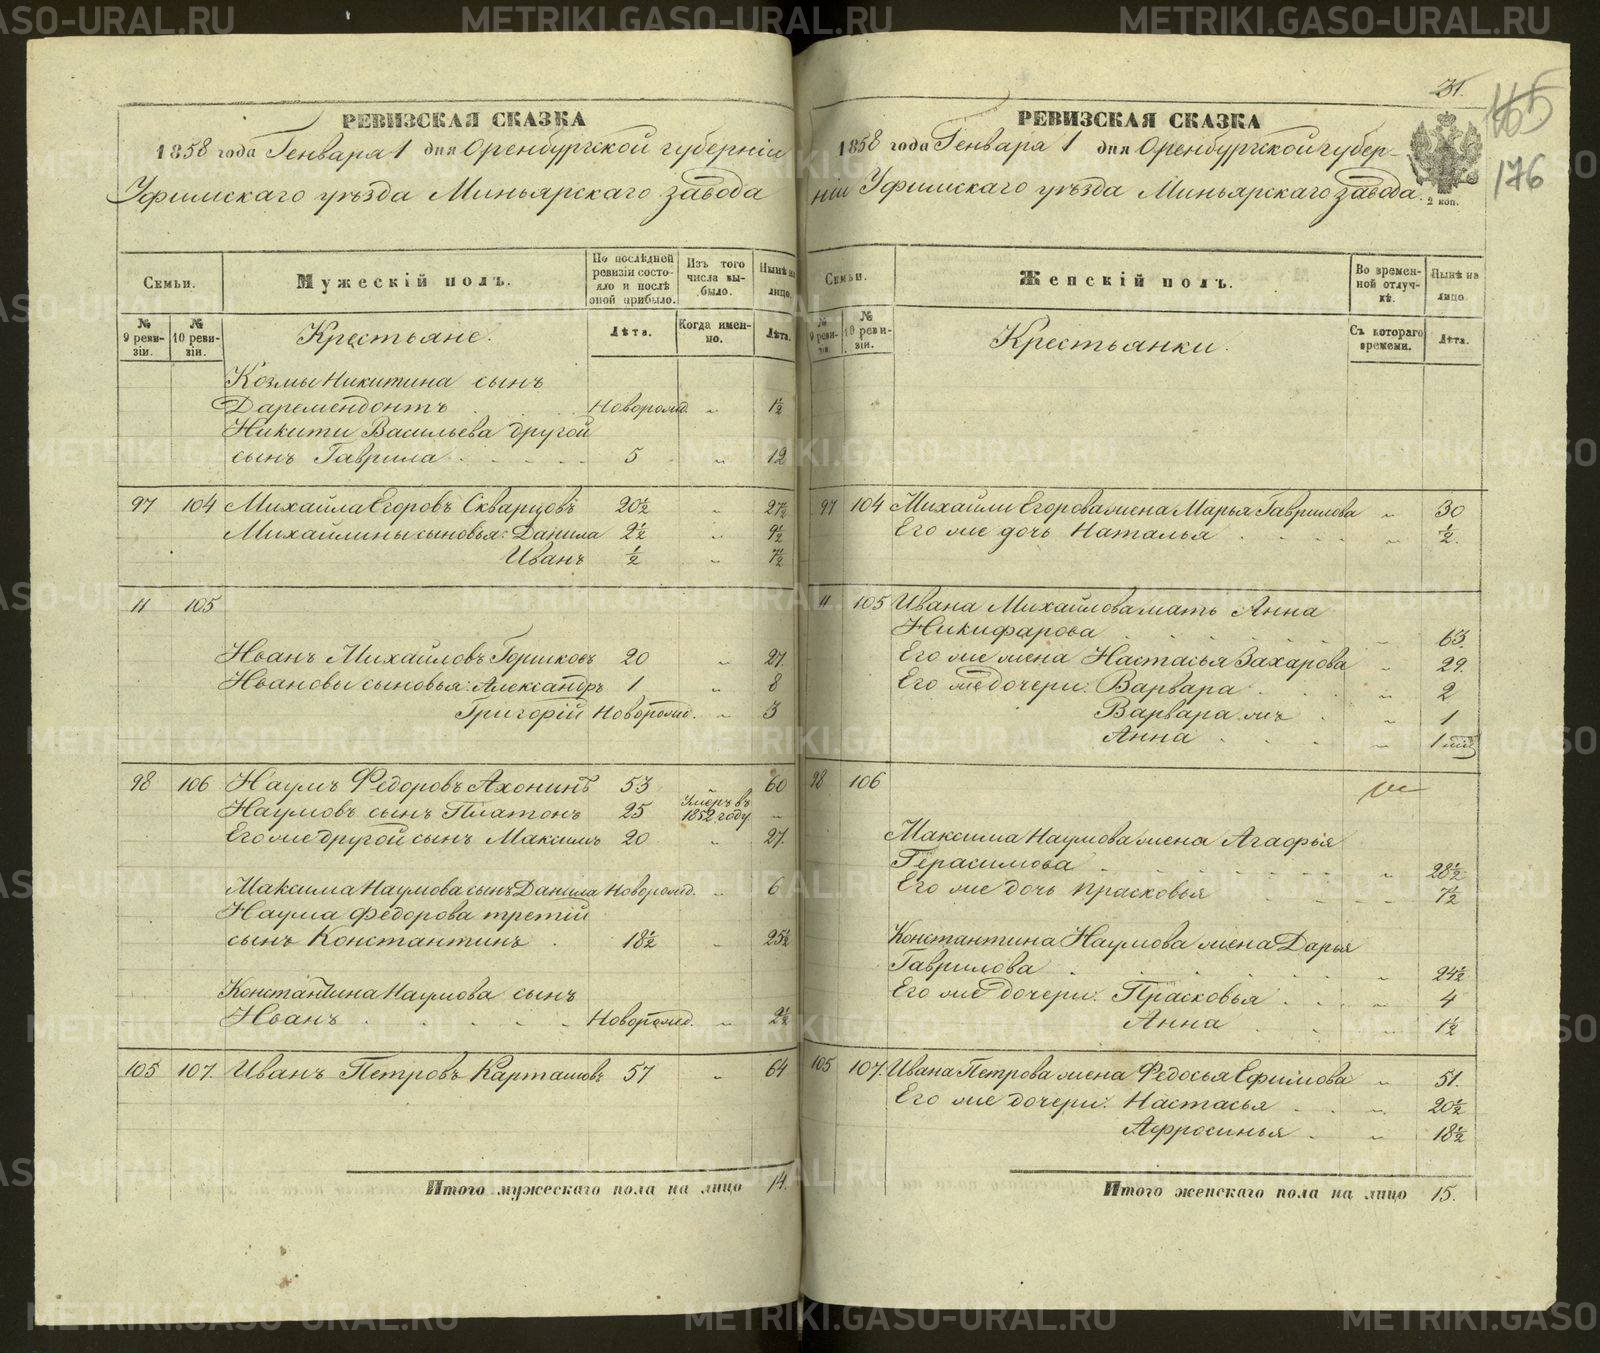 РЕВИЗСКАЯ СКАЗКА
1858 года Генваря 1 дня Оренбургской губерніи
Уфимскаго уѣзда Миньярскаго завода
Семьи.
Мужескій полъ.
По послѣдней ревизіи состояло и послѣ оной прибыло.
Изъ того числа выбыло.
Нынѣ на лицо.
№ 9 ревизіи.
№ 10 ревизіи.
Крестьяне.
Лѣта.
Когда именно.
Лѣта.
Козмы Никитина сынъ
Новорожд. " 1½
Никити Васильева другой
сынъ Гаврила 5 " 12
97 104 Михайла Егоровъ Скварцовъ 20½ " 27½
Михайлины сыновья: Данила 2½ " 9½
Иванъ ½ " 7½
11 105
Иванъ Михайловъ Горшковъ 20 " 27.
Ивановы сыновья: Александръ 1 " 8
Григорій Новорожд. " 3
98 106 Наумъ Федоровъ Ахонинъ 53 60
Наумовъ сынъ Платонъ 25 Умеръ въ 1852 году "
Его же другой сынъ Максимъ 20 " 27.
Максима Наумова сынъ Данила Новорожд. " 6
Наума Федорова третій
сынъ Константинъ 18½ " 25½
Константина Наумова сынъ
Иванъ Новорожд. " 2½
105 107. Иванъ Петровъ Карташовъ 57 " 64
Итого мужескаго пола на лицо 14.
31.
165
176
РЕВИЗСКАЯ СКАЗКА
1858 года Генваря 1 дня Оренбургской губер-
ніи Уфимскаго уѣзда Миньярскаго завода.
2 коп.
Семьи.
Женскій полъ.
Во временной отлучкѣ.
Нынѣ на лицо.
№ 9 ревизіи.
№ 10 ревизіи.
Крестьянки.
Съ котораго времени.
Лѣта.
97 104 Михайли Егорова жена Марья Гаврилова " 30
Его же дочь Наталья " ½.
11 105 Ивана Михайлова мать Анна
Никифарова " 63.
Его же жена Настасья Захарова " 29.
Его же дочери: Варвара " 2
Варвара жъ " 1
Анна " 1
98 106
Максима Наумова жена Агафья
Герасимова " 28½
Его же дочь Прасковья " 7½
Константина Наумова жена Дарья
Гаврилова " 24½
Его же дочери: Прасковья " 4
Анна " 1½
105 107. Ивана Петрова жена Федосья Ефимова " 51.
Его же дочери: Настасья " 20½
Афросинья " 18½
Итого женскаго пола на лицо 15.
METRIKI.GASO-URAL.RU